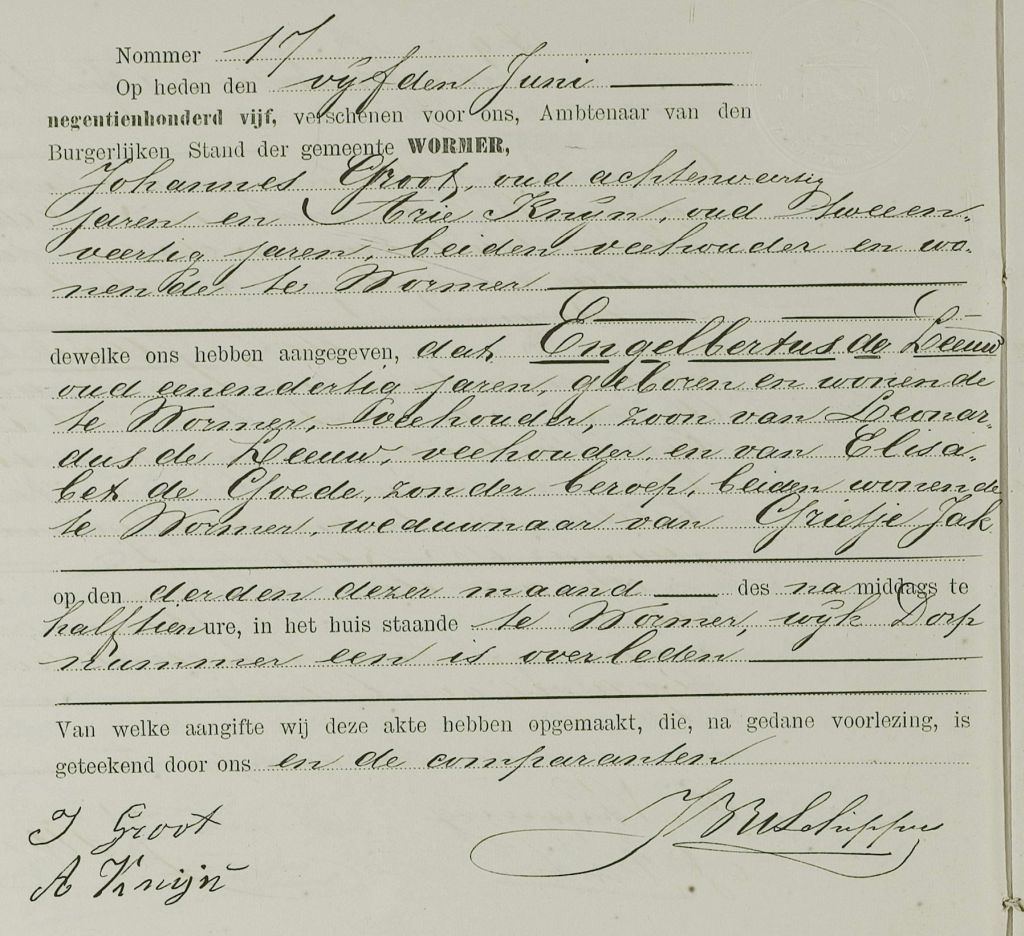 Nommer 17
Op heden den vijfden Juni
negentienhonderd vijf, verschenen voor ons, Ambtenaar van den
Burgerlijken Stand der gemeente WORMER,
Johannes Groot, oud achtenveertig
jaren en Arie Knijn, oud tweeen-
veertig jaren, beiden veehouder en wo-
nende te Wormer
dewelke ons hebben aangegeven, dat Engelbertus de Leeuw
oud eenendertig jaren, geboren en wonende
te Wormer, veehouder, zoon van Leonar-
dus de Leeuw, veehouder, en van Elisa-
bet de Goede, zonder beroep, beiden wonende
te Wormer, weduwnaar van Grietje Jak
op den derden dezer maand des namiddags te
half tien ure, in het huis staande te Wormer, wijk Dorp
nummer een is overleden
Van welke aangifte wij deze akte hebben opgemaakt, die, na gedane voorlezing, is
geteekend door ons en de comparanten
J Groot
A Knijn
Schipper